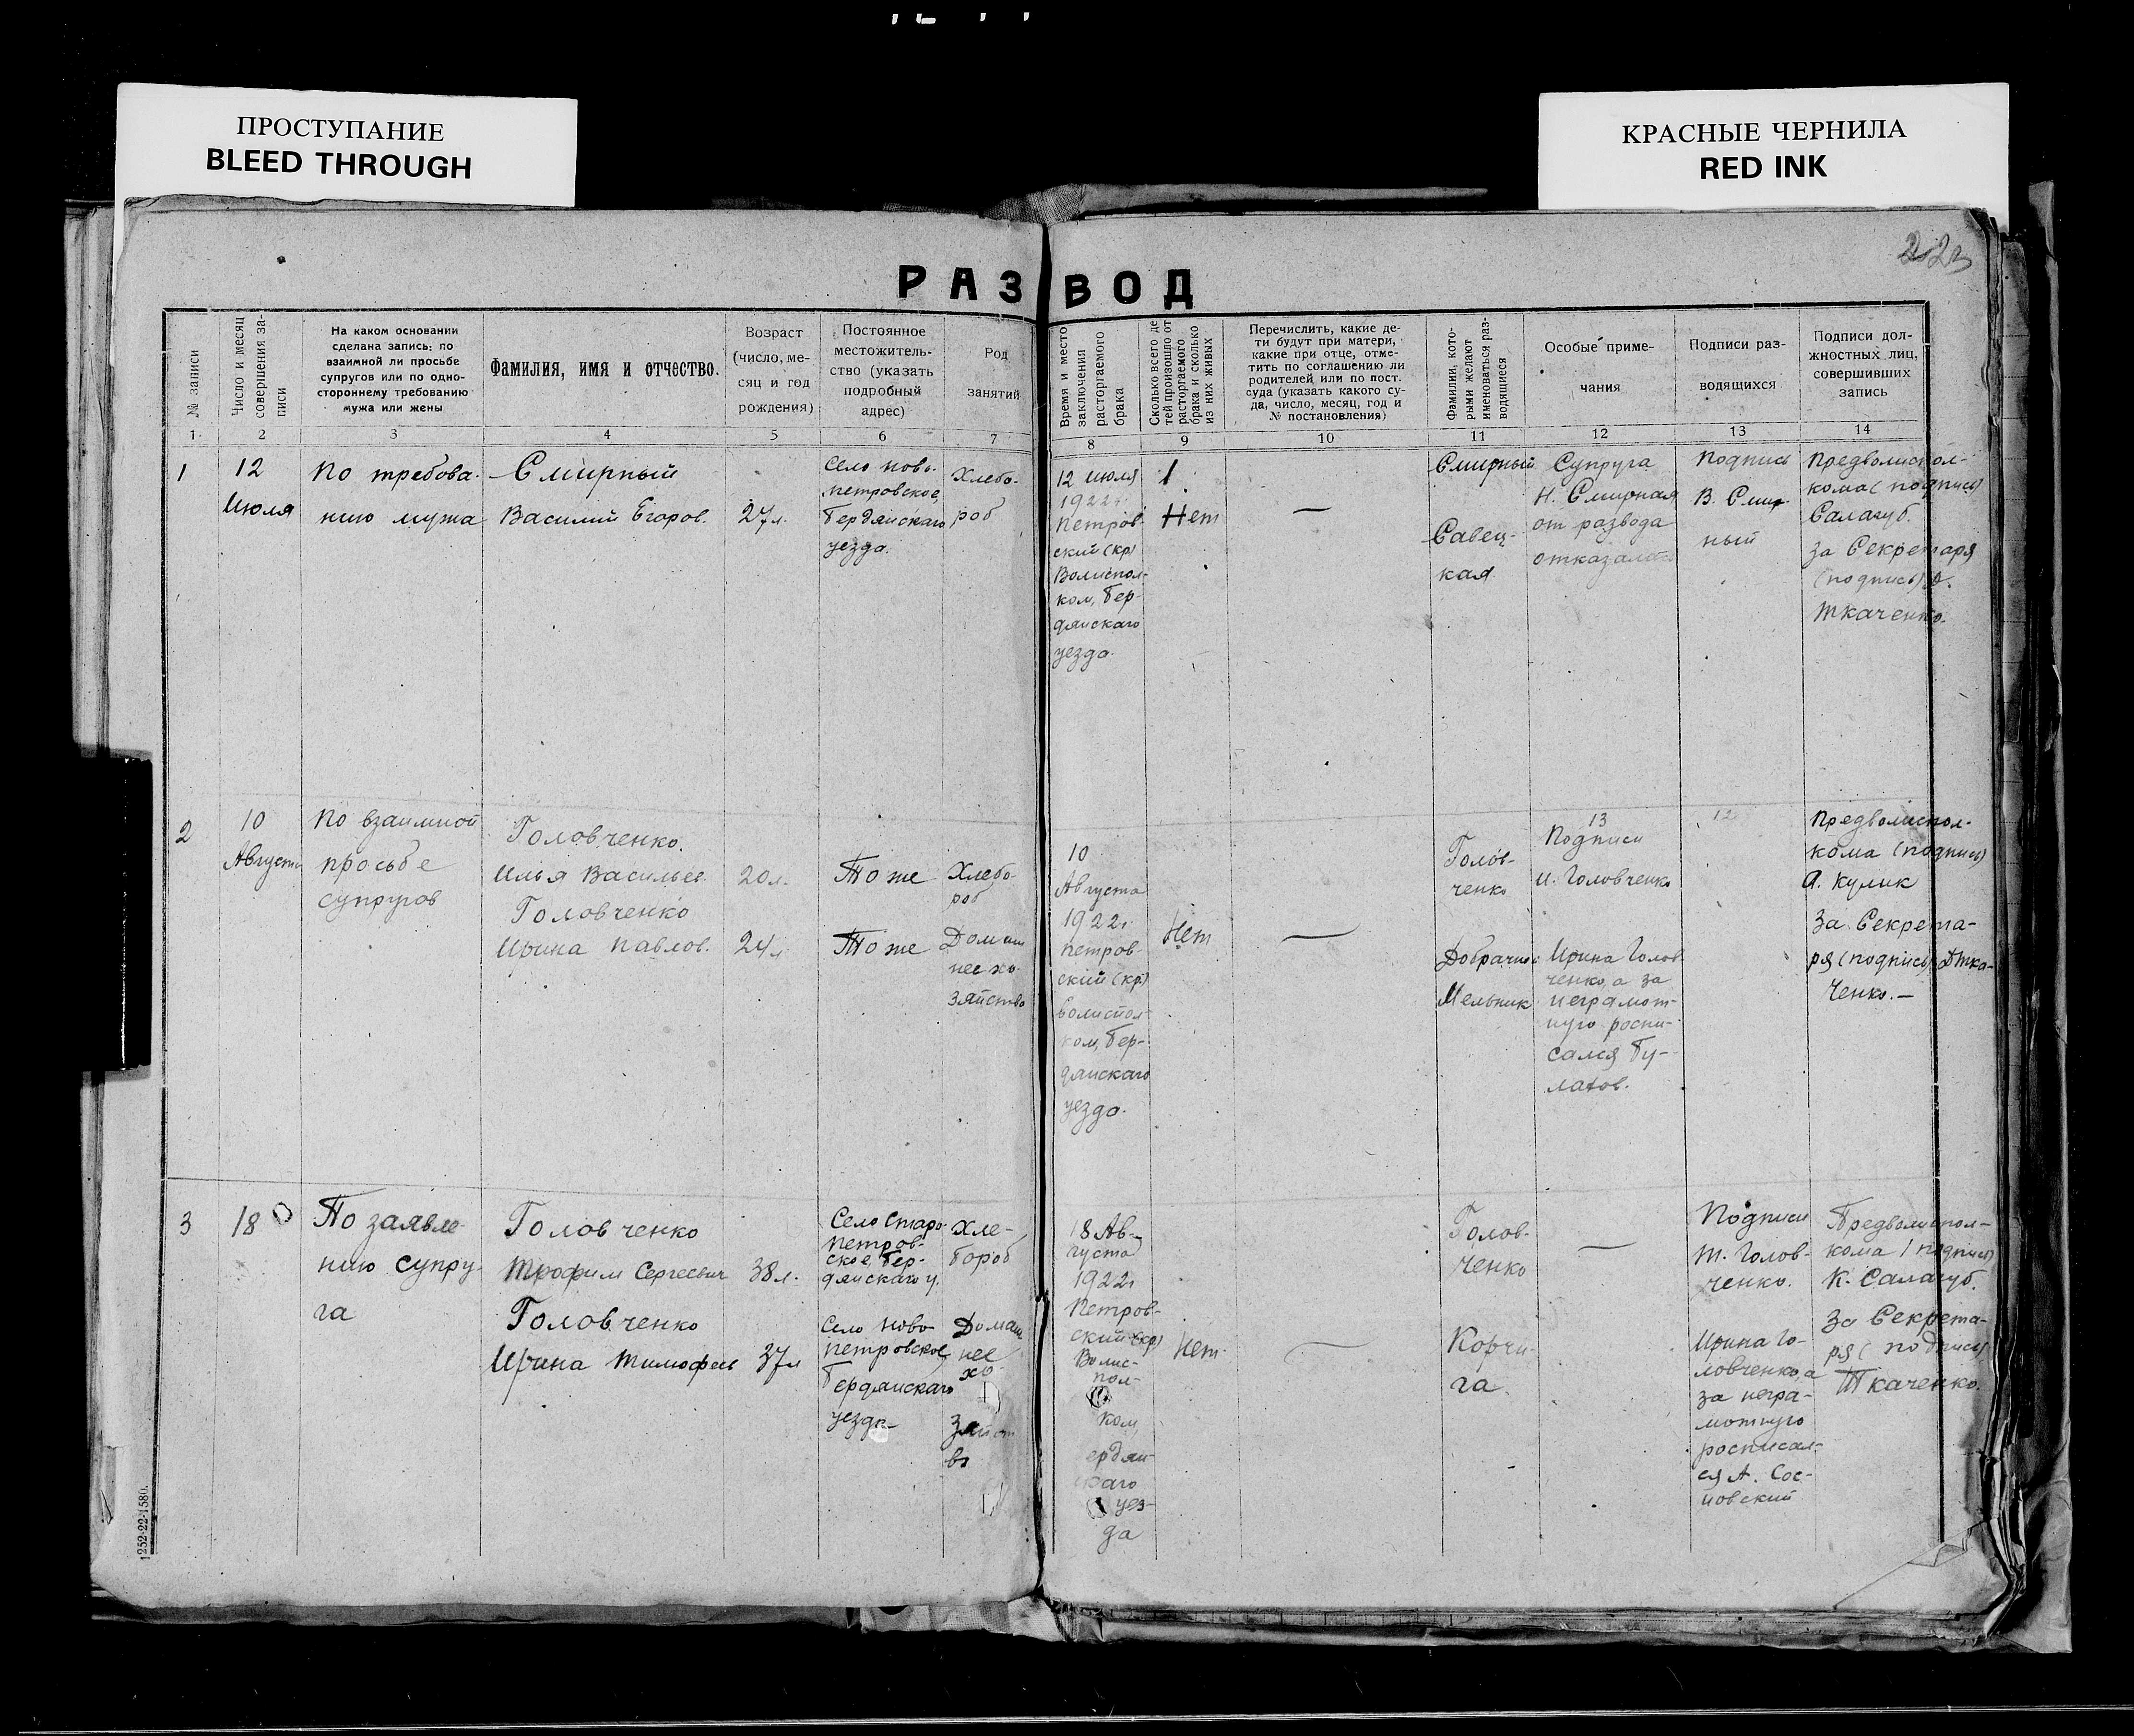 ПРОСТУПАНИЕ
BLEED THROUGH
КРАСНЫЕ ЧЕРНИЛА
RED INK
РАЗВОД
№ записи
Число и месяц
совершения за-
писи
На каком основании
сделана запись: по
взаимной ли просьбе
супругов или по одно-
стороннему требованию
мужа или жены
Фамилия, имя и отчество.
Возраст
(число, ме-
сяц и год
рождения)
Постоянное
местожитель-
ство (указать
подробный
адрес)
Род
занятий
Время и место
заключения
расторгаемого
брака
Сколько всего де
тей произошло от
расторгаемого
брака и сколько
из них живых
Перечислить, какие де-
ти будут при матери,
какие при отце, отме-
тить по соглашению ли
родителей или по пост.
суда (указать какого су-
да, число, месяц, год и
№ постановления)
Фамилии, кото-
рыми желают
именоваться раз-
водящиеся
Особые приме-
чания
Подписи раз-
водящихся
Подписи дол-
жностных лиц,
совершивших
запись
1
2
3
4
5
6
7
8
9
10
11
12
13
14
1
12
Июля
По требова-
нию мужа
Смирный
Василий Егоров.
27л.
Село Ново-
петровское,
Бердянскаго
уезда.
Хлебо-
роб
12 июля
1922г.
Петров-
ский (кр)
Волиспол-
ком, Бер-
дянскаго
уезда.
1
Нет
—
Смирный
Савец-
кая
Супруга
Н. Смирная
от развода
отказалась
Подпись
В. Смир
ный
Предволиспол-
кома (подпись)
Салагуб.
За Секретаря
(подпись) Д.
Ткаченко.
2
10
Августа
По взаимной
просьбе
супругов
Головченко.
Илья Васильев.
Головченко
Ирина Павлов.
20л.
24л
То же
То же
Хлебо-
роб
Домаш
нее хо-
зяйство
10
Августа
1922г
Петров-
ский (кр)
Волиспол-
ком, Бер-
дянскаго
уезда.
Нет
—
Голов-
ченко
Добрачная
Мельник
13
Подписи
И. Головченко
Ирина Голов
ченко, а за
неграмот-
ную роспи-
сался Бу-
латов.
12
Предволиспол-
кома (подпись)
А. Кулик
За Секрета-
ря (подпись) Д Тка-
ченко.—
3
18
По заявле-
нию супру-
га
Головченко
Трофим Сергеевич
Головченко
Ирина Тимофеев
38л.
37л
Село Старо-
Петров-
ское, Бер-
дянскаго у.
Село Ново-
петровское
Бердянскаго
уезда
Хле-
бороб
Домаш
нее
хо-
зяйст
во
18 Ав-
густа
1922г
Петров-
ский (кр)
Волис-
пол-
ком,
ердян-
скаго
уез-
да
Нет
—
Голов-
ченко
Корчи-
га.
—
Подписи
Т. Голов-
ченко.
Ирина Го-
ловченко, а
за негра-
мотную
росписал-
ся А. Сос-
новский
Предволиспол-
кома (подпись)
К. Салагуб.
За Секрета-
ря (подпись)
Ткаченко.
1252-22-1580.